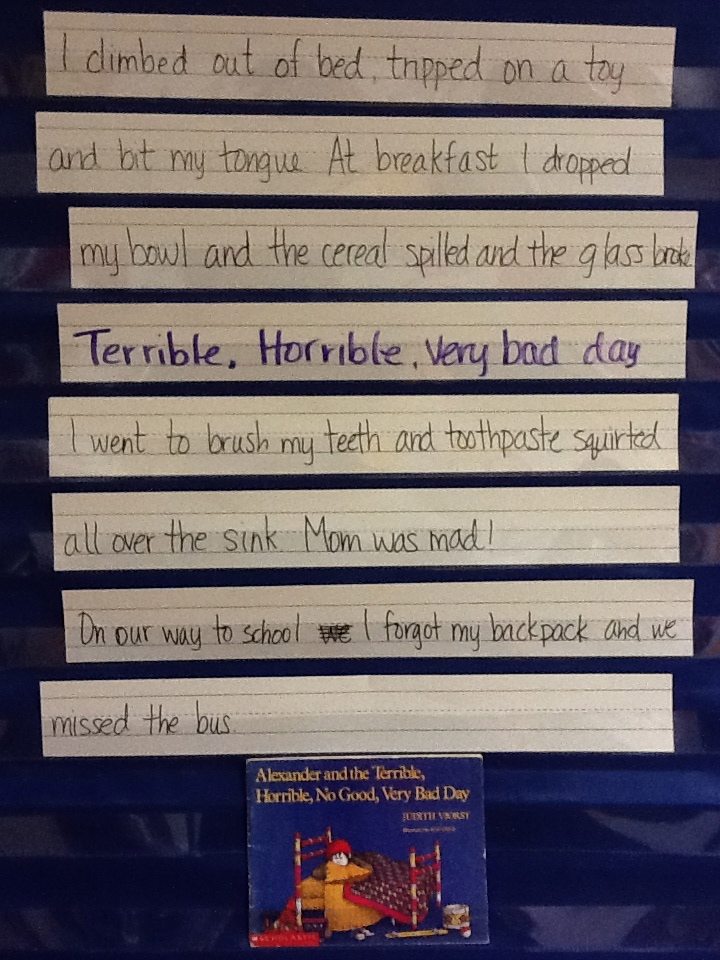 I climbed out of bed, tripped on a toy
and bit my tongue At breakfast I dropped
my bowl and the cereal spilled and the glass broke
Terrible, Horrible, very bad day
I went to brush my teeth and toothpaste squirted
all over the sink. Mom was mad!
On our way to school we I forgot my backpack and we
missed the bus
Alexander and the Terrible,
Horrible, No Good, Very Bad Day
JUDITH VIORST
SCHOLASTIC